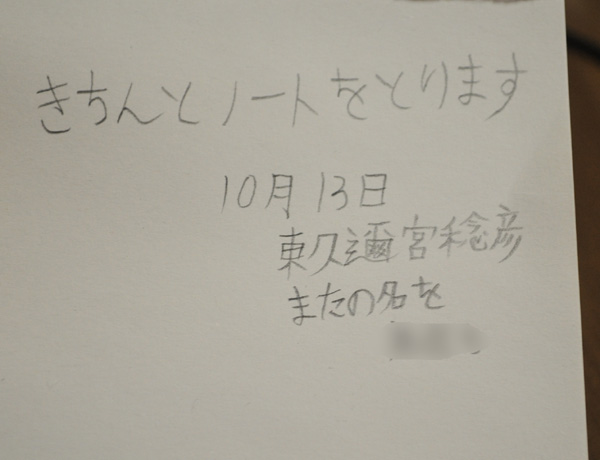 きちんとノートをとります
10月13日
東久邇宮稔彦
またの名を